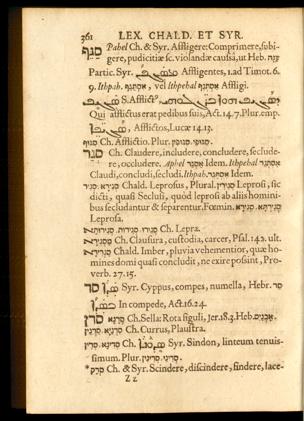 361 LEX. CHALD. ET SYR.
סגף Pahel Ch. & Syr. Affligere: Comprimere, subi-
gere, pudicitiæ sc. violandæ causâ, ut Heb. ענה
Partic. Syr. Affligentes, 1. ad Timot. 6.
9. Ithpah. אסתגף, vel Ithpehal אסתגף Affligi.
S. Afflict⁹
Qui afflictus erat pedibus suis, Act. 14. 7. Plur. emp.
Afflictos, Lucæ 14. 13.
סגוף Ch. Afflictio. Plur. סגופי. סגופין
סגר Ch. Claudere, includere, concludere, seclude-
re, occludere. Aphel אסגר Idem. Ithpehal אסתגר
Claudi, concludi, secludi. Ithpah. אסתגר Idem.
סגיר, סגירא Chald. Leprosus, Plural. סגירין Leprosi, sic
dicti, quasi Seclusi, quòd leprosi ab aliis homini-
bus secludantur & separentur. Fœmin. סגירא, סגירתא
Leprosa.
סגירותא, סגירות, סגירו Ch. Lepra.
מסגירא Ch. Clausura, custodia, carcer, Psal. 142. ult.
סגרירא Chald. Imber, pluvia vehementior, quæ ho-
mines domi quasi concludit, ne exire possint, Pro-
verb. 27. 15.
סד Syr. Cyppus, compes, numella, Hebr. סד
In compede, Act. 16. 24.
סדן, סדנא Ch. Sella: Rota figuli, Jer. 18. 3. Heb. אבנים
Ch. Currus, Plaustra.
סדין, סדינא Ch. Syr. Sindon, linteum tenuis-
simum. Plur. סדיני. סדינין
* סדק Ch. & Syr. Scindere, discindere, findere, lace-
Zz